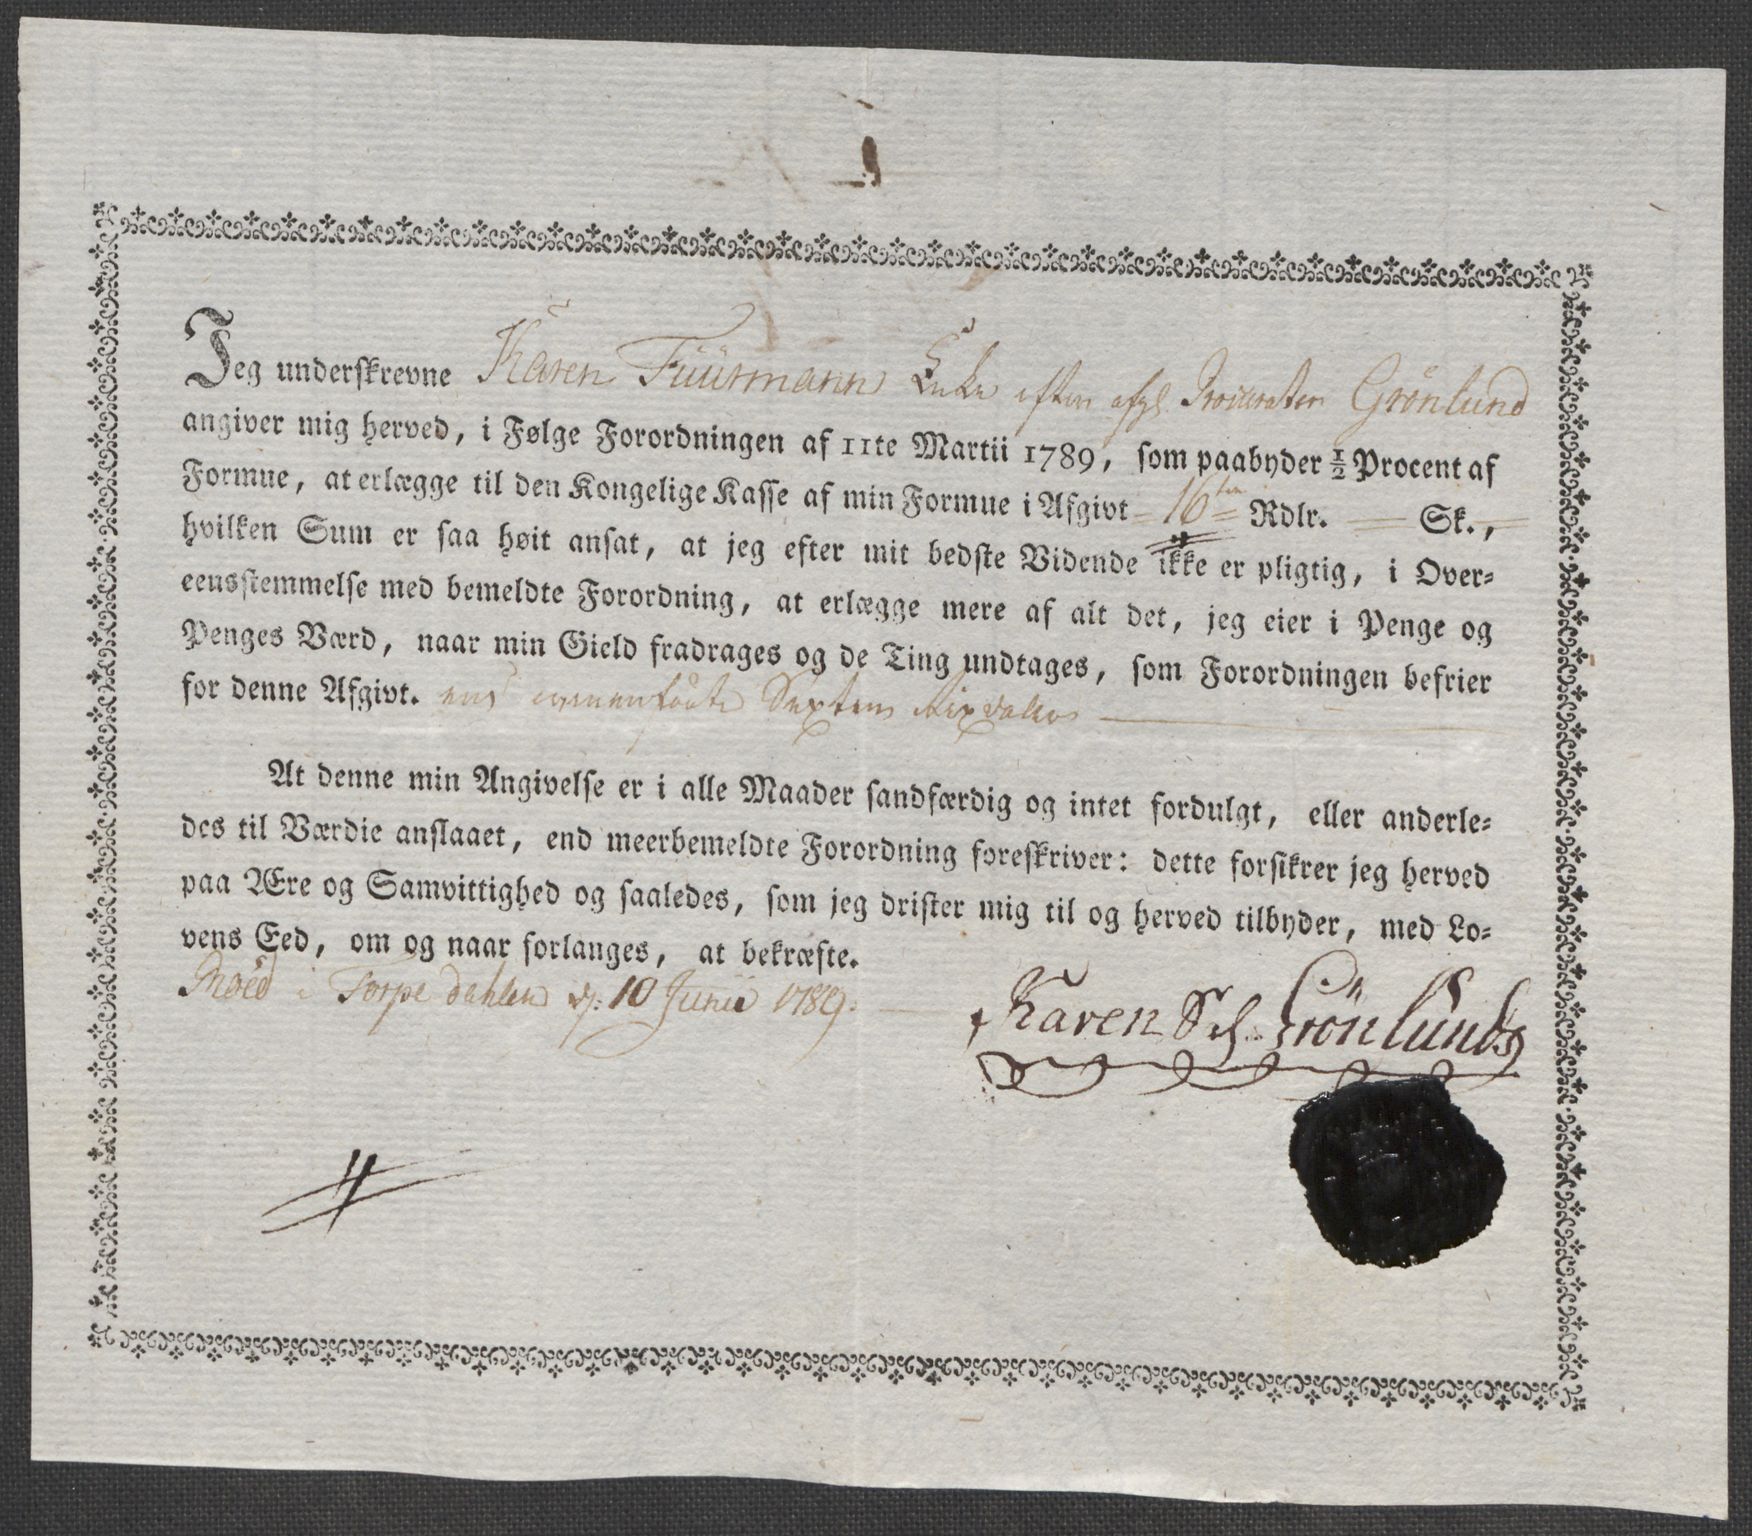 Jeg underskrevne Karen Fuurmann Enke efter afgl. Procurator Grönlund
angiver mig herved, i Følge Forordningen af 11te Martii 1789, som paabyder ½ Procent af
Formue, at erlægge til den Kongelige Kasse af min Formue i Afgivt 16ten Rdlr. — Sk.,
hvilken Sum er saa høit ansat, at jeg efter mit bedste Vidende ikke er pligtig, i Over-
eensstemmelse med bemeldte Forordning, at erlægge mere af alt det, jeg eier i Penge og
Penges Værd, naar min Gield fradrages og de Ting undtages, som Forordningen befrier
for denne Afgivt. Sexten Rixdaler
At denne min Angivelse er i alle Maader sandfærdig og intet fordulgt, eller anderle-
des til Værdie anslaaet, end meerbemeldte Forordning foreskriver: dette forsikrer jeg herved
paa Ære og Samvittighed og saaledes, som jeg drister mig til og herved tilbyder, med Lo-
vens Eed, om og naar forlanges, at bekræfte.
i Torpe dahlen d: 10 Junii 1789.
Karen Sl. Grönlunds